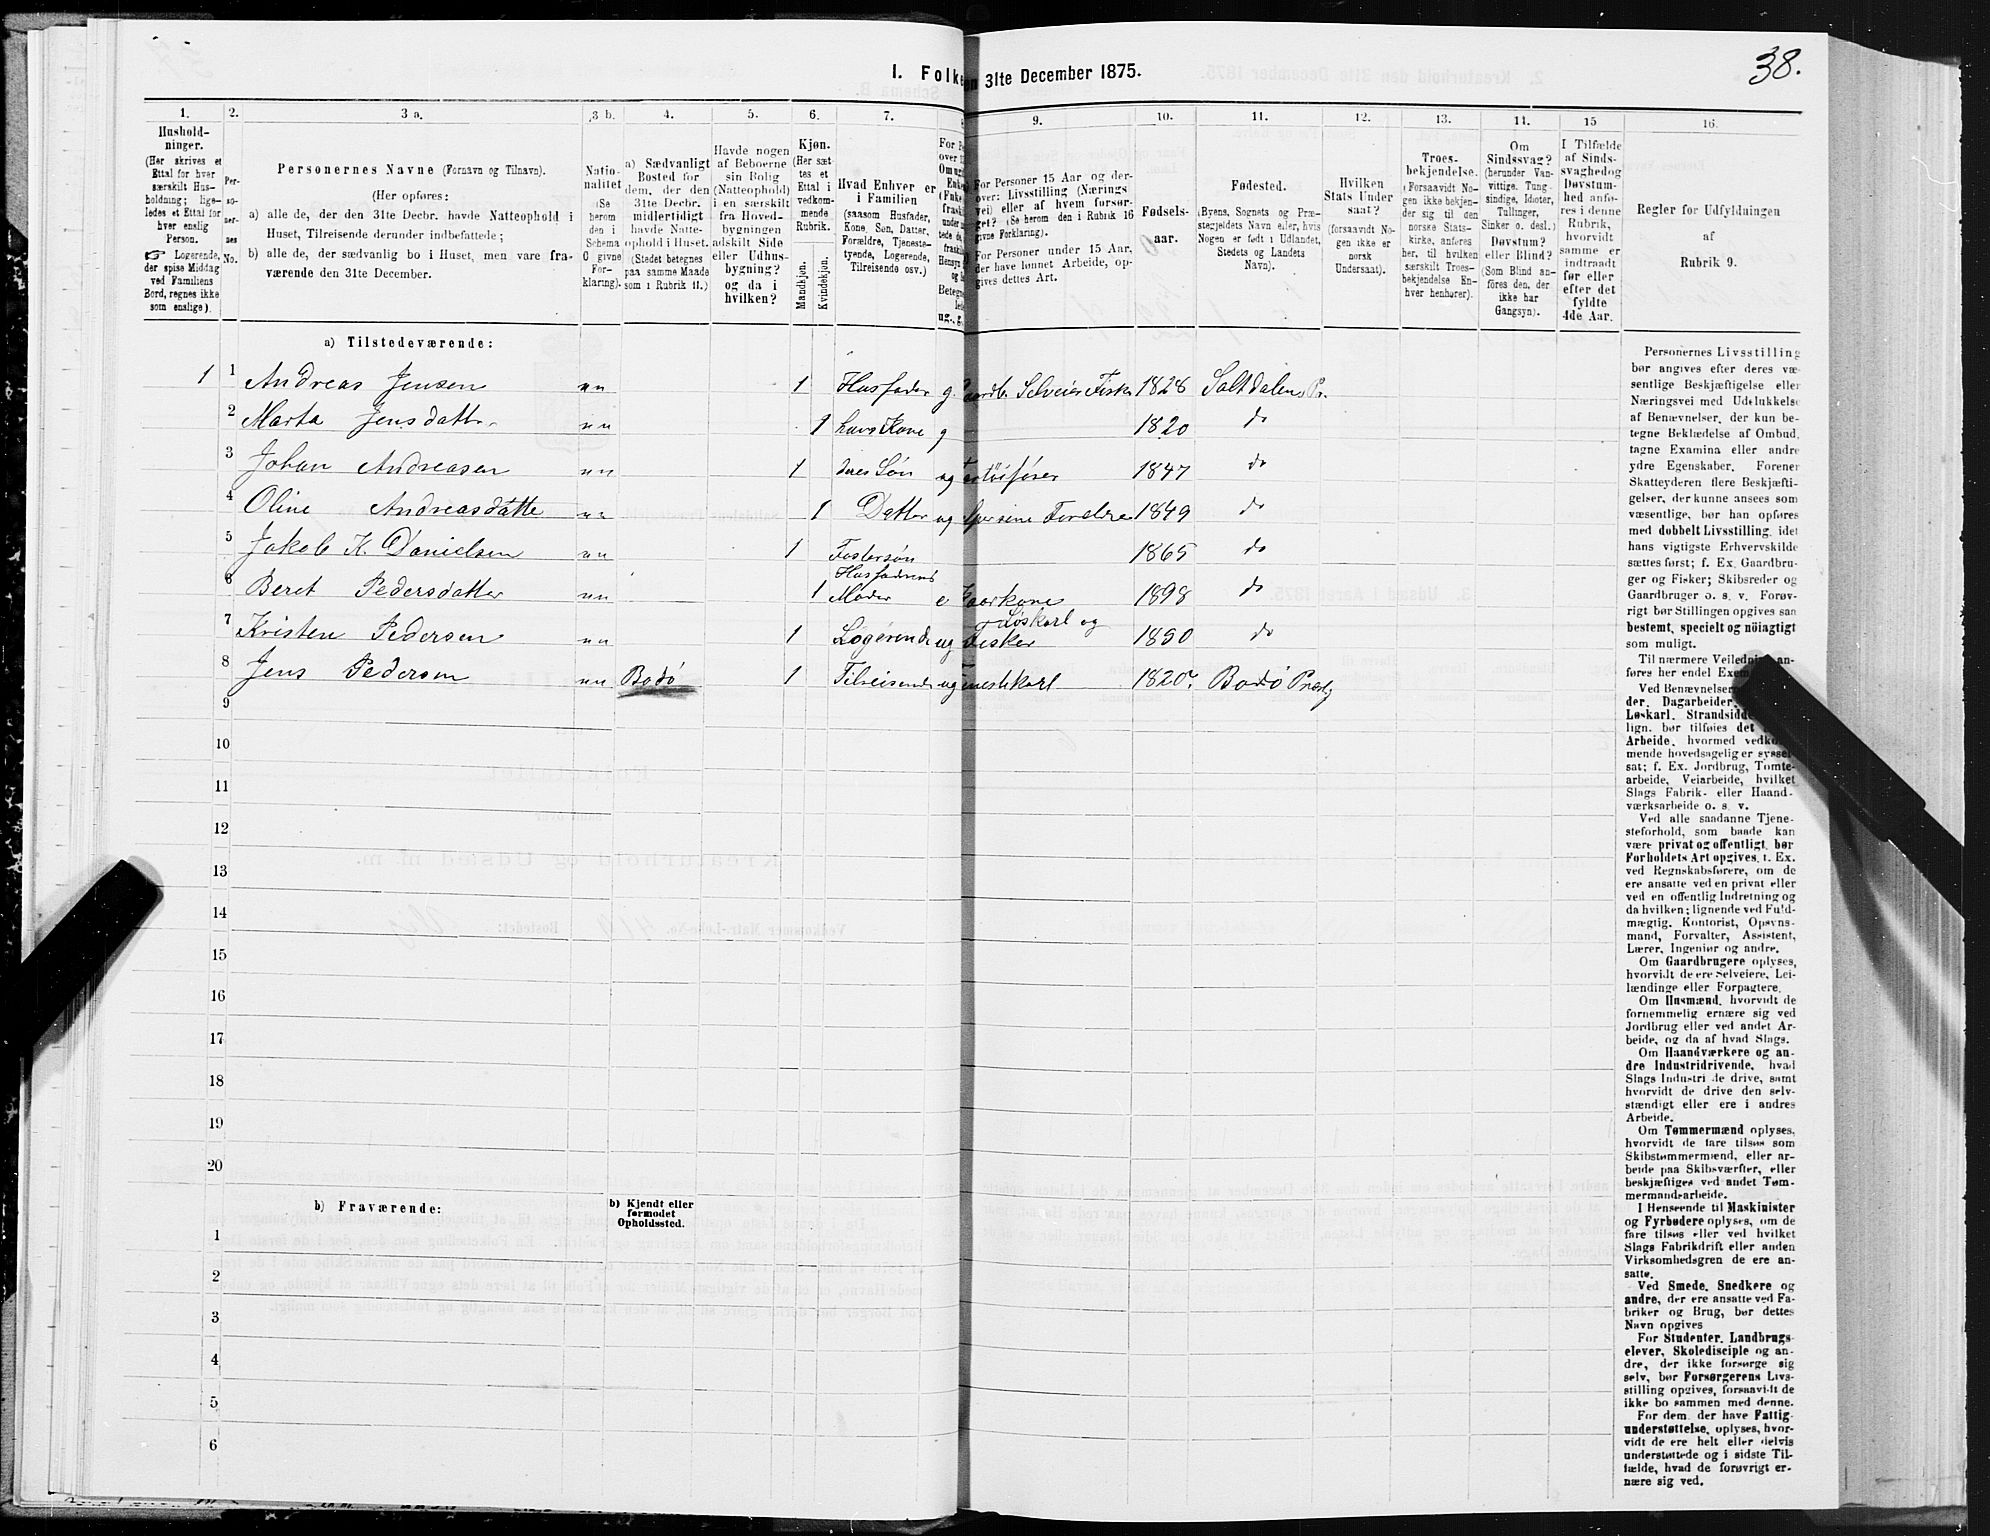 38.
1. Folke en 31te December 1875.
1. 2. 3 a. 3 b. 4. 5. 6. 7. 9. 10. 11. 12. 13. 14. 15 16.
Hushold-
ninger.
(Her skrives et
Ettal for hver
særskilt Hus-
holdning; lige-
ledes et Ettal for
hver enslig
Person.
☞ Logerende,
der spise Middag
ved Familiens
Bord, regnes ikke
som enslige).
Per-
so-
ner-
nes
No.
Personernes Navne (Fornavn og Tilnavn).
(Her opføres:
a) alle de, der den 31te Decbr. havde Natteophold i
Huset, Tilreisende derunder indbefattede;
b) alle de, der sædvanlig bo i Huset, men vare fra-
værende den 31te December.
Natio-
nalitet
(Se
herom
den i
Schema
C givne
For-
klaring).
a) Sædvanligt
Bosted for
dem, der den
31te Decbr.
midlertidigt
havde Natte-
ophold i Huset.
(Stedet betegnes
paa samme Maade
som i Rubrik 11.)
Havde nogen
af Beboerne
sin Bolig
(Natteophold)
i en særskilt
fra Hoved-
bygningen
adskilt Side
eller Udhus-
bygning?
og da i
hvilken?
Kjøn.
(Her sæt-
tes et
Ettal i
vedkom-
mende
Rubrik.
Mandkjøn.
Kvindekjøn.
Hvad Enhver er
i Familien
(saasom Husfader,
Kone, Søn, Datter,
Forældre, Tjeneste-
tyende, Logerende,
Tilreisende osv.)
For Personer 15 Aar og der-
over: Livsstilling (Nærings
vei) eller af hvem forsør-
get? (Se herom den i Rubrik 16
givne Forklaring).
For Personer under 15 Aar,
der have lønnet Arbeide, op-
gives dettes Art.
Fødsels-
aar.
Fødested.
(Byens, Sognets og Præ-
stegjeldets Navn eller, hvis
Nogen er født i Udlandet,
Stedets og Landets
Navn).
Hvilken
Stats Under
saat?
(forsaavidt No-
gen ikke er
norsk
Undersaat).
Troes-
bekjendelse.
(Forsaavidt No-
gen ikke bekjen-
der sig til den
norske Stats-
kirke, anføres
her, til hvilken
særskilt Troes-
bekjendelse En-
hver henhører).
Om
Sindssvag?
(herunder Van-
vittige, Tung-
sindige, Idioter,
Tullinger,
Sinker o. desl.)
Døvstum?
eller Blind?
(Som Blind an-
føres den, der
ikke har
Gangsyn).
I Tilfælde
af Sinds-
svaghed og
Døvstum-
hed anfø-
res i denne
Rubrik,
hvorvidt
samme er
indtraadt
før eller
efter det
fyldte
4de Aar.
Regler for Udfyldningen
af
Rubrik 9.
a) Tilstedeværende:
1 1 Andreas Jensen nn 1 Husfader g. Gaardb. Selveier Fisker 1828 Saltdalens Pr.
2 Marta Jensdatter nn 1 hans Kone g 1820 do
3 Johan Andreasen nn 1 deres Søn ug 1847 do
4 Oline Andreasdatte nn 1 Datter ug 1849 do
5 Jakob K. Danielsen nn 1 Fostersøn 1865 do
6 Beret Pedersdatter nn 1 Husfaderens Moder e Kaarkone 1898 do
7 Kristen Pedersen nn 1 Logerende ug Løskarl og Fisker 1850 do
8 Jens Pedersen nn Bodø 1 Tilreisende ug 1820 Bodø Præstg
9
10
11
12
13
14
15
16
17
18
19
20
b) Fraværende:
b) Kjendt eller
formodet
Opholdssted.
1
2
3
4
5
6
Personernes Livsstilling
bør angives efter deres væ-
sentlige Beskjæftigelse eller
Næringsvei med Udelukkelse
af Benævnelser, der kun be-
tegne Beklædelse af Ombud,
tagne Examina eller andre
ydre Egenskaber. Forener
Skatteyderen flere Beskjæfti-
gelser, der kunne ansees som
væsentlige, bør han opføres
med dobbelt Livsstilling, idet
hans vigtigste Erhvervskilde
sættes først; f. Ex. Gaardbru-
ger og Fisker; Skibsreder og
Gaardbruger o. s. v. Forøv-
rigt bør Stillingen opgives saa
bestemt, specielt og nöiagtigt
som muligt.
Til nærmere Veiledning an-
føres her endel Exem
Ved Benævnelser
der, Dagarbeider,
Løskarl, Strandsidde
lign. bør tilføies det
Arbeide, hvormed vedkom-
mende hovedsagelig er syssel-
sat; f. Ex. Jordbrug, Tomte-
arbeide, Veiarbeide, hvilket
Slags Fabrik- eller Haand-
værksarbeide o. s. v.
Ved alle saadanne Tjene-
steforhold, som baade kan
være privat og offentligt, bør
Forholdets Art opgives, t. Ex.
ved Regnskabsførere, om de
ere ansatte ved en privat eller
ved en offentlig Indretning og
da hvilken; lignende ved Fuld-
mægtig, Kontorist, Opsyns-
mand, Forvalter, Assistent,
Lærer, Ingeniør og andre.
Om Gaardbrugere oplyses,
hvorvidt de ere Selveiere, Lei-
lændinge eller Forpagtere.
Om Husmænd, hvorvidt de
fornemmelig ernære sig ved
Jordbrug eller ved andet Ar-
beide, og da af hvad Slags.
Om Haandværkere og an-
dre Industridrivende, hvad
Slags Industri de drive, samt
hvorvidt de drive den selv-
stændigt eller ere i andres
Arbeide.
Om Tømmermænd oplyses,
hvorvidt de fare tilsøs som
Skibstømmermænd, eller ar-
beide paa Skibsværfter, eller
beskjæftiges ved andet Tøm-
mermandsarbeide.
I Henseende til Maskinister
og Fyrbødere oplyses, om de
fare tilsøs eller ved hvilket
Slags Fabrikdrift eller anden
Virksomhedsgren de ere an-
satte.
Ved Smede, Snedkere og
andre, der ere ansatte ved Fa-
briker og Brug, bør dettes
Navn opgives
For Studenter, Landbrugs-
elever, Skoledisciple og an-
dre, der ikke forsørge sig
selv, bør Forsørgerens Livs-
stilling opgives, forsaavidt de
ikke bo sammen med denne.
For dem, der have Fattig-
understøttelse, oplyses, hvor-
vidt de ere helt eller delvis
understøttede og i sidste Til-
fælde, hvad de forøvrigt er-
nære sig ved.